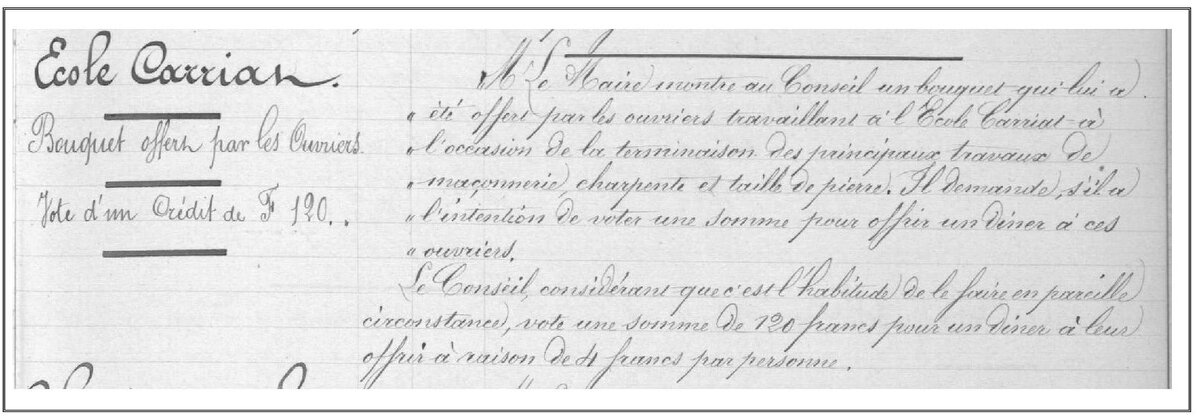 Ecole Carriat.
Bouquet offert par les Ouvriers.
Vote d'un Crédit de F 120..
Mr Le Maire montre au Conseil un bouquet qui lui a
" été offert par les ouvriers travaillant à l'Ecole Carriat à
" l'occasion de la terminaison des principaux travaux de
" maçonnerie, charpente et taille de pierre. Il demande, s'il a
" l'intention de voter une somme pour offrir un diner à ces
" ouvriers.
Le Conseil, considérant que c'est l'habitude de le faire en pareille
circonstance, vote une somme de 120 francs pour un diner à leur
offrir à raison de 4 francs par personne.